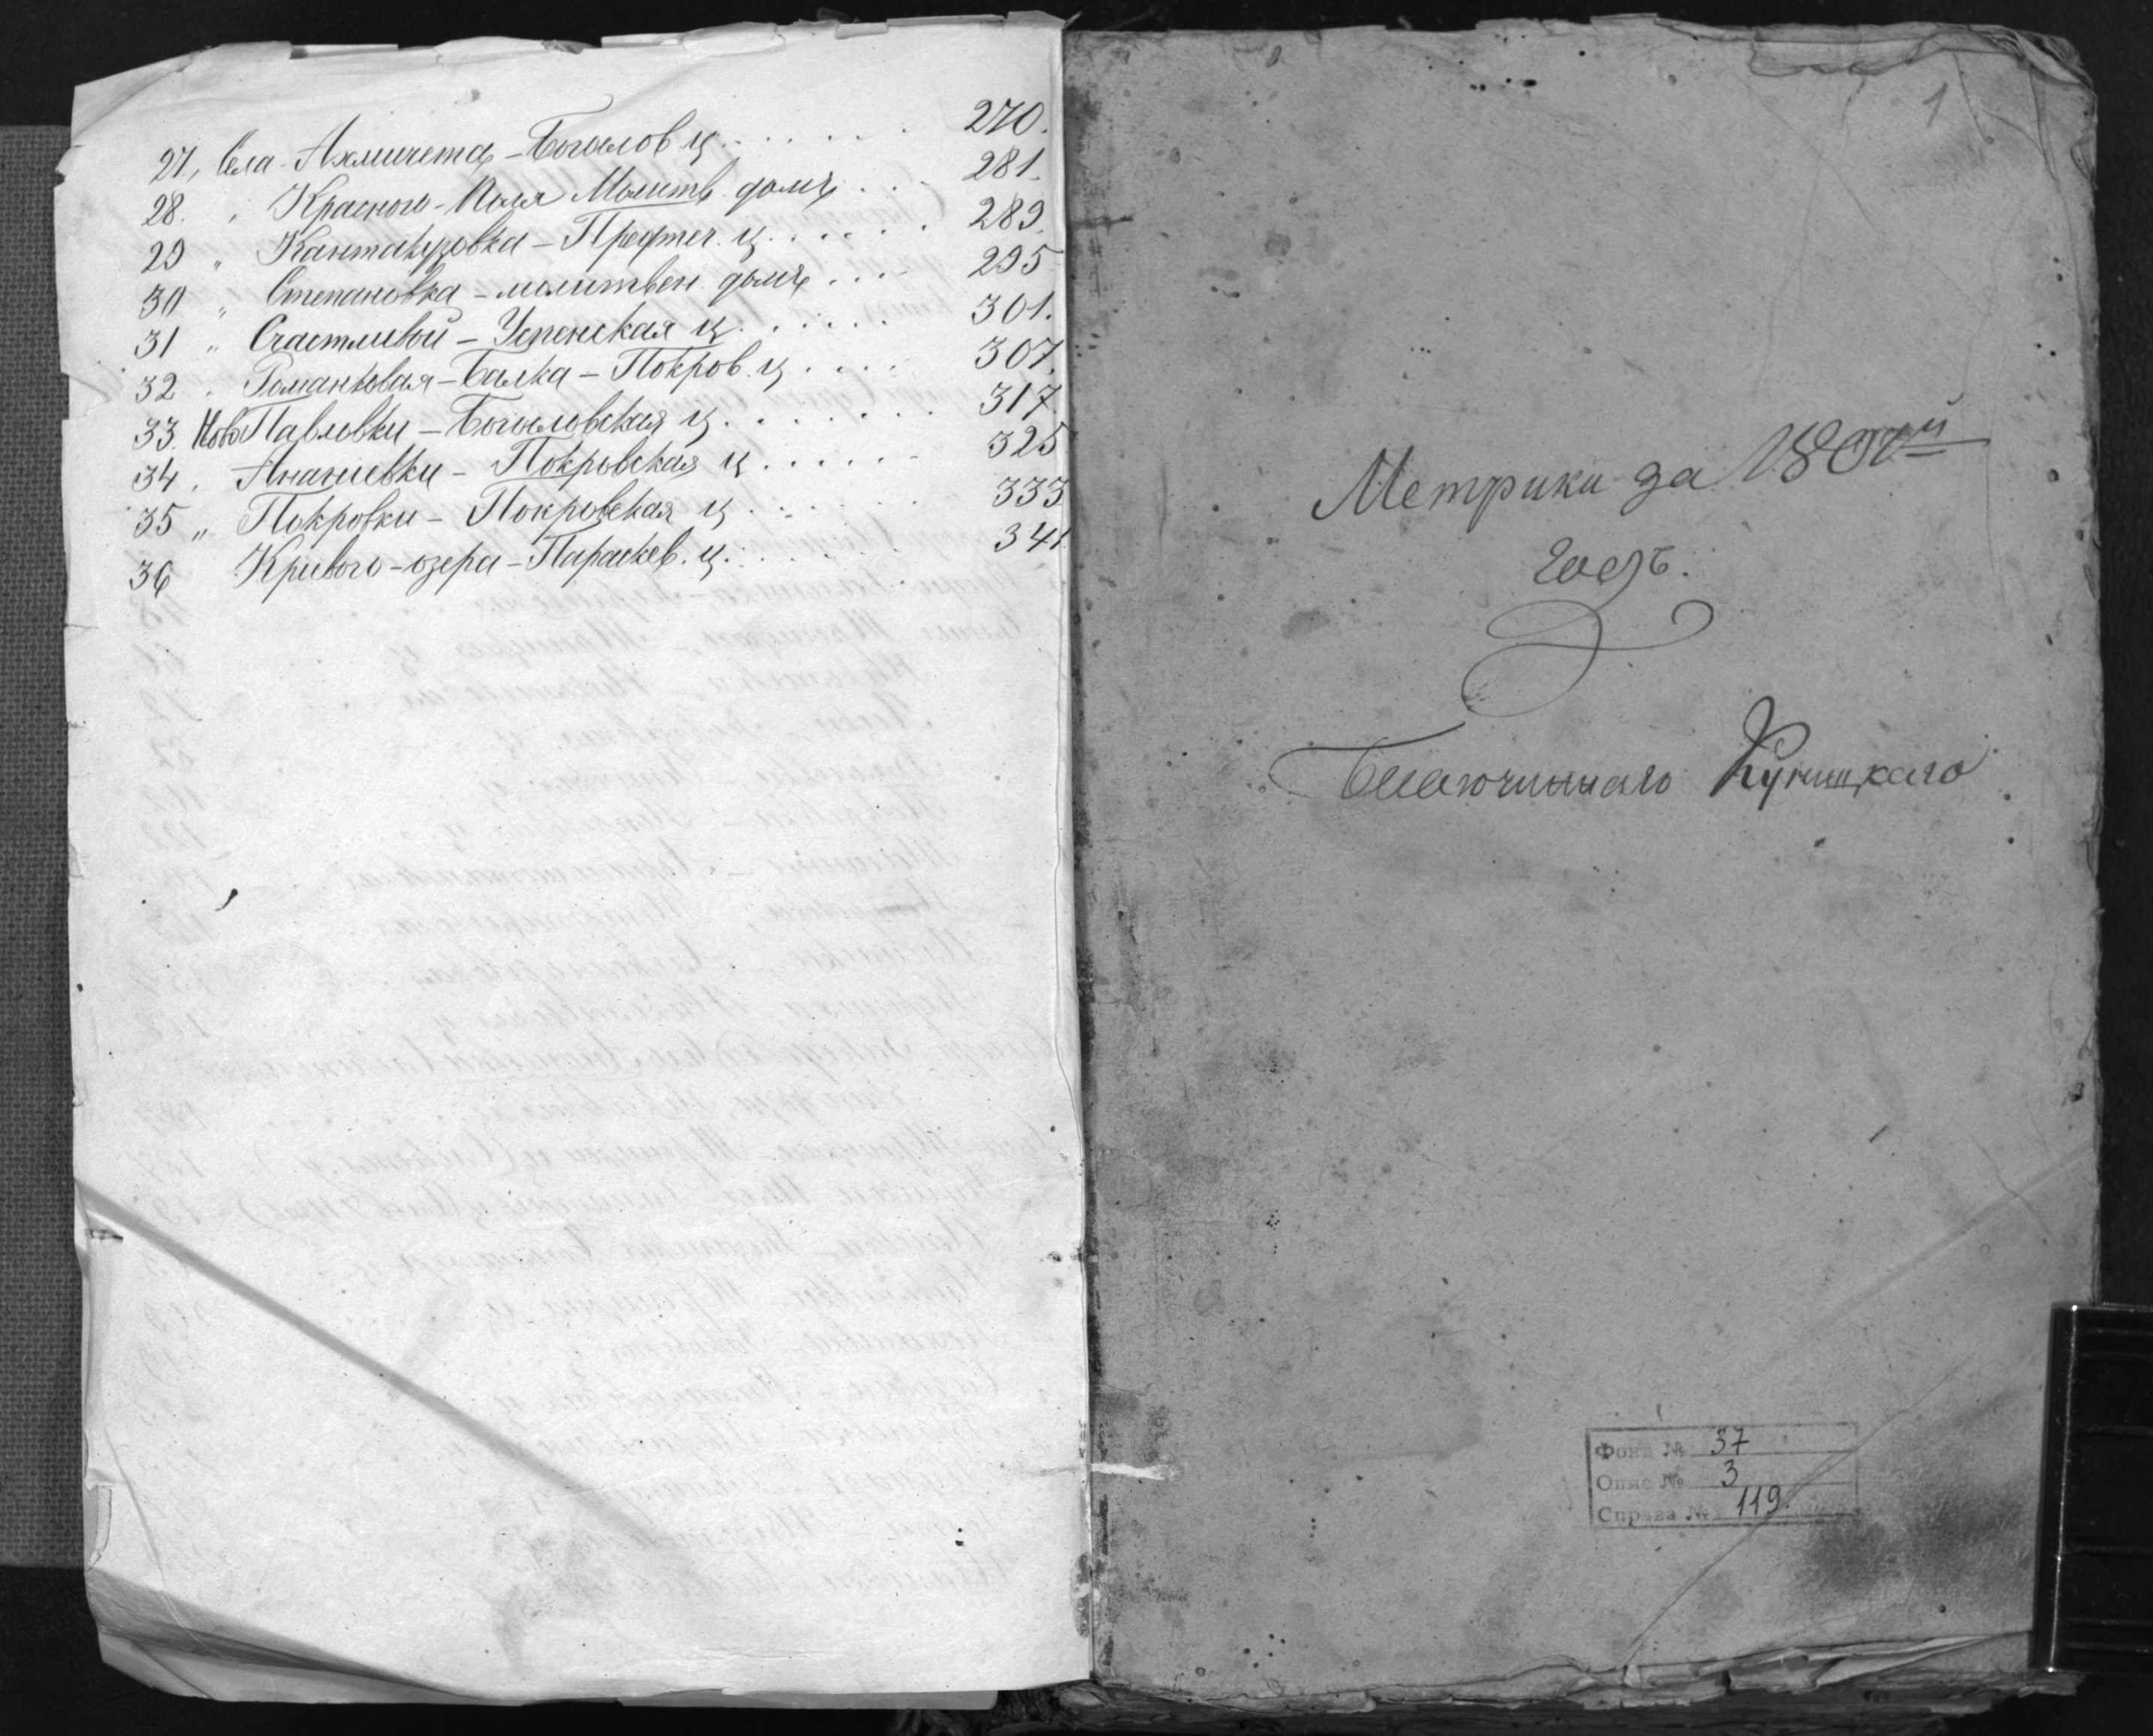 27, Села Ахмичета – Богослов ц. . . . . . . 270.
28. " Красного-Поля Молитв. домъ . . . 281.
29 " Кантакузовка – Предтеч. ц. . . . . . 289.
30 " Степановка – молитвен домъ . . . 295
31 " Счастливой – Успенская ц. . . . . . 301.
32 " Романковая-Балка – Покров. ц. . . . 307.
33. Ново Павловки – Богословская ц. . . . . . . 317.
34. Ананиевки – Покровская ц. . . . . . 325
35 " Покровки – Покровская ц. . . . . . 333
36 Кривого-озера – Параскев. ц. . . . . . 341
1
Метрики за
Годъ.
Благочиннаго Куницкаго
Фонд № 37
Опис № 3
Справа № 119.